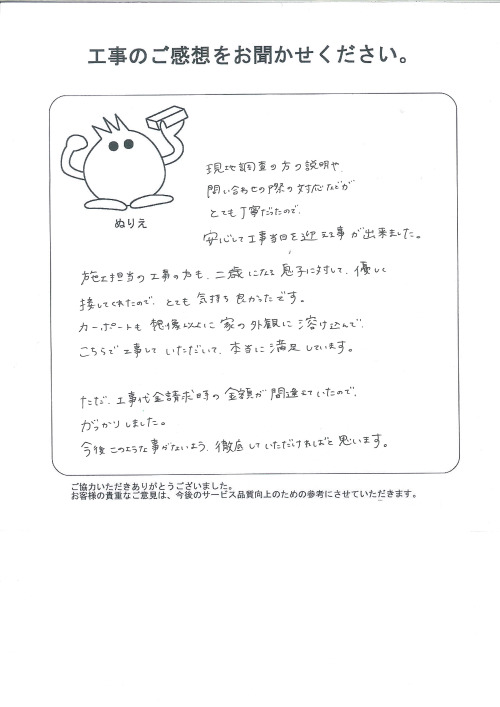 工事のご感想をお聞かせください。
現地調査の方の説明や、
問い合わせの際の対応などが
とても丁寧だったので、
安心して工事当日を迎える事が出来ました。
ぬりえ
施工担当の工事の方も、二歳になる息子に対して、優しく
接してくれたので、とても気持ち良かったです。
カーポートも想像以上に家の外観に溶け込んで、
こちらで工事していただいて、本当に満足しています。
ただ、工事代金請求時の金額が間違えていたので、
がっかりしました。
今後このような事がないよう、徹底していただければと思います。
ご協力いただきありがとうございました。
お客様の貴重なご意見は、今後のサービス品質向上のための参考にさせていただきます。